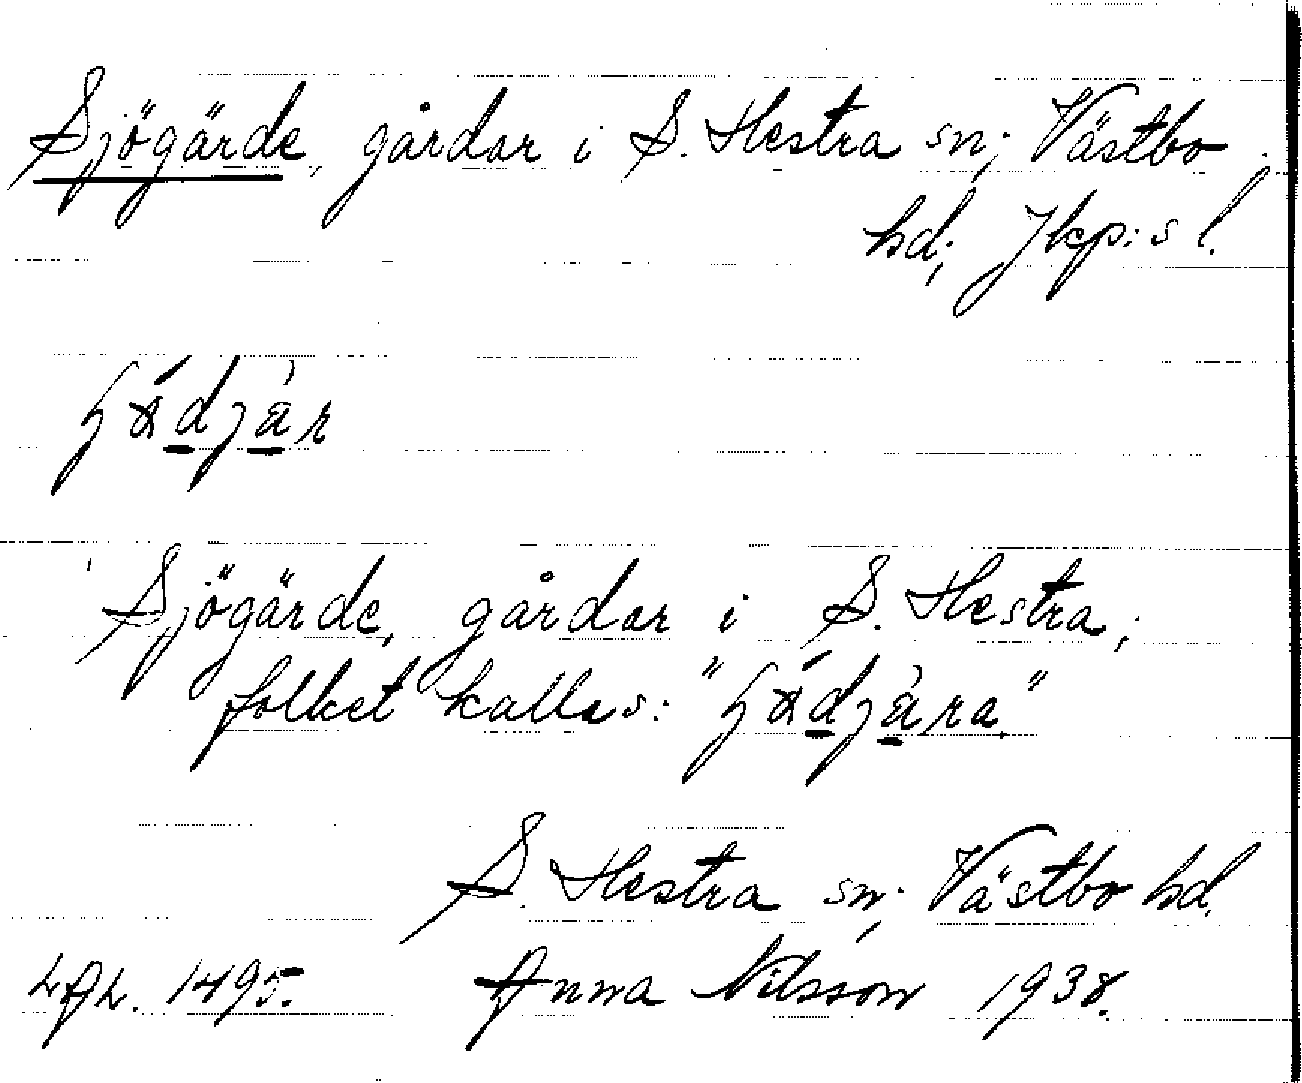 Sjögärde, gårdar i S. Hestra sn; Västbo
hd; Jkp:s l.
Sjögärde, gårdar i S. Hestra;
folket kallas:
S. Hestra sn; Västbo hd.
1495. Anna Nilsson 1938.